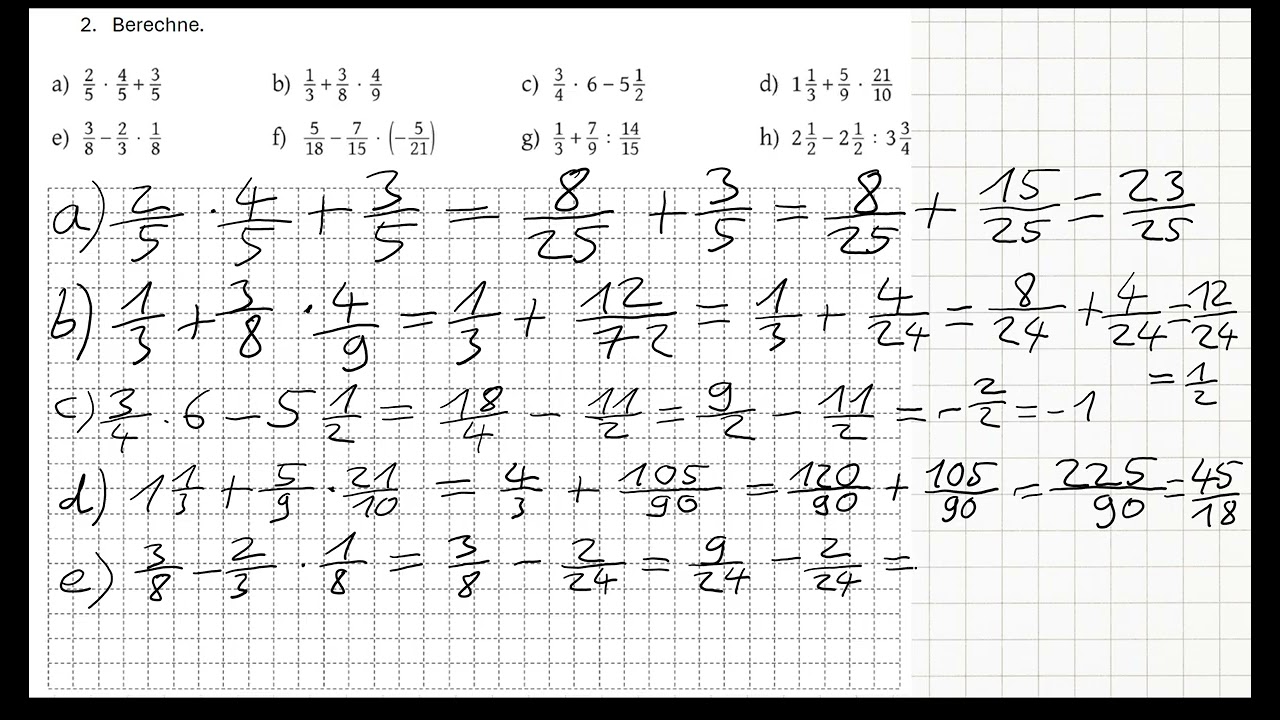 2. Berechne.
a) 2/5 · 4/5 + 3/5 b) 1/3 + 3/8 · 4/9 c) 3/4 · 6 − 5 1/2 d) 1 1/3 + 5/9 · 21/10
e) 3/8 − 2/3 · 1/8 f) 5/18 − 7/15 · (−5/21) g) 1/3 + 7/9 : 14/15 h) 2 1/2 − 2 1/2 : 3 3/4
a) 2/5 · 4/5 + 3/5 = 8/25 + 3/5 = 8/25 + 15/25 = 23/25
b) 1/3 + 3/8 · 4/9 = 1/3 + 12/72 = 1/3 + 4/24 = 8/24 + 4/24 = 12/24
= 1/2
c) 3/4 · 6 − 5 1/2 = 18/4 − 11/2 = 9/2 − 11/2 = − 2/2 = − 1
d) 1 1/3 + 5/9 · 21/10 = 4/3 + 105/90 = 120/90 + 105/90 = 225/90 = 45/18
e) 3/8 − 2/3 · 1/8 = 3/8 − 2/24 = 9/24 − 2/24 =